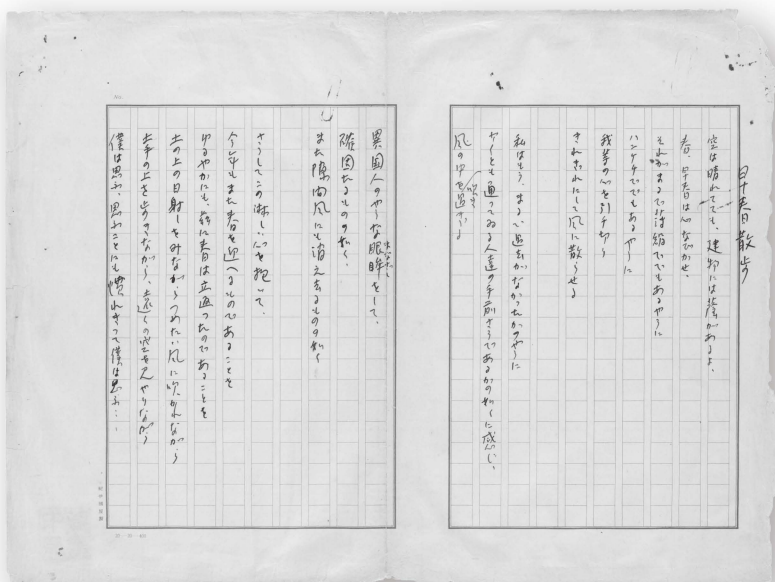 早春散歩
空は晴れてても、建物には蔭があるよ、
春、早春は心なびかせ、
それがまるで薄絹ででもあるやうに
ハンケチででもあるやうに
我等の心を引千切り
きれぎれにして風に散らせる
私はもう、まるで過去がなかつたかのやうに
少くとも通つてゐる人達の手前さうであるかの如くに感じ、
風の中を吹き過ぎる
異国人のやうな眼眸をして、
まなざし
確固たるものの如く、
また隙間風にも消え去るものの如く
さうしてこの淋しい心を抱いて、
今年もまた春を迎へるものであることを
ゆるやかにも、茲に春は立返つたのであることを
土の上の日射しをみながらつめたい風に吹かれながら
土手の上を歩きながら、遠くの空を見やりながら
僕は思ふ、思ふことにも慣れきつて僕は思ふ……